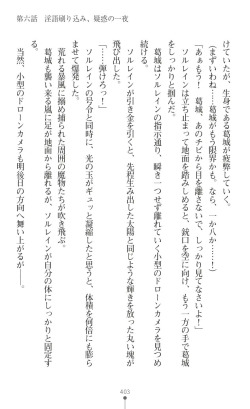 第六話　淫語刷り込み、疑惑の一夜
ていたが、生身である葛城が疲弊していく。
（でもまあ……葛城がもう限界かも。なら、一か八か……）
「あぁもう！　葛城、あのチビから目を離さないで。しっかり見てなさいよ！」
ソルレインは立ち止まって地面を踏みしめると、銃口を空に向け、もう一方の手で葛城
をしっかりと掴んだ。
葛城はソルレインの指示通り、瞬き一つせず離れていく小型のドローンカメラを見つめ
続ける。
ソルレインが引き金を引くと、先程生み出した太陽と同じような輝きを放った丸い塊が
飛び出した。
「……弾けろっ！」
ソルレインの号令と同時に、光の玉がギュッと縮こまったと思うと、体積を何倍にも膨ら
ませて爆発した。
荒れる暴風に揉め捕られた周囲の魔物たちが吹き飛ぶ。
葛城も襲い来る嵐に足が地面から離れるが、ソルレインが自分の体が飛
されないように支える。
当然、小型のドローンカメラも明後日の方向へ舞い上がるが――。
403